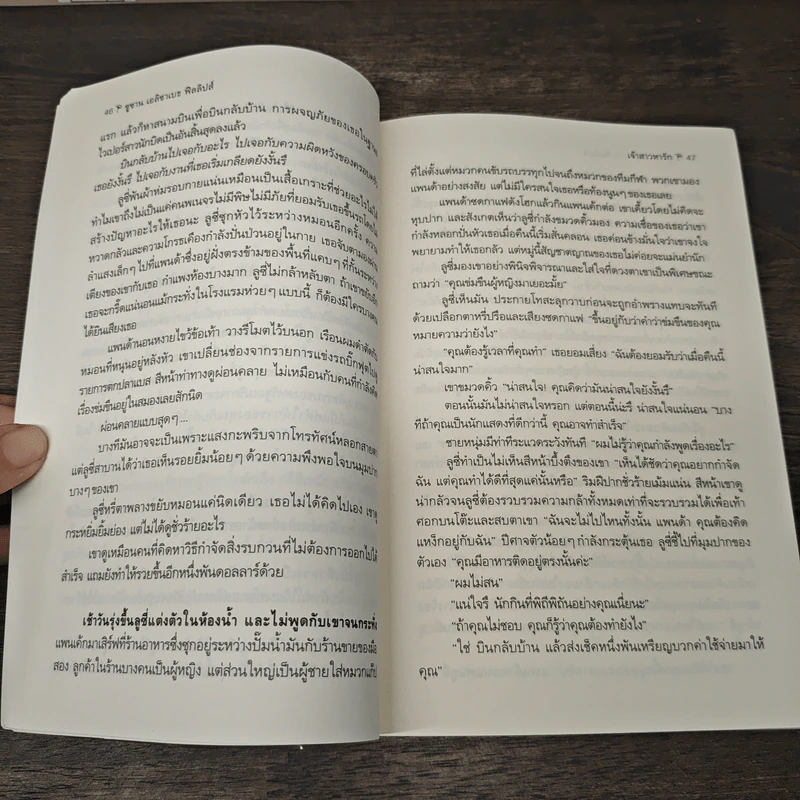 46 ซูซาน เอลิซาเบธ ฟิลลิปส์
แรก แล้วก็หาสนามบินเพื่อบินกลับบ้าน การผจญภัยของเธอในฐานะ
ไวเปอร์สาวนักบิดเป็นอันสิ้นสุดลงแล้ว
บินกลับบ้านไปเจอกับอะไร ไปเจอกับความผิดหวังของครอบครัว
เธอยังงั้นรึ ไปเจอกับงานที่เธอเริ่มเกลียดยังงั้นรึ
ลูซี่พันผ้าห่มรอบกายแน่นเหมือนเป็นเสื้อเกราะที่ช่วยอะไรไม่ได้
ทำไมเขาถึงไม่เป็นแค่คนพเนจรไม่มีพิษไม่มีภัยที่ยอมรับเธอขึ้นรถโดยไม่
สร้างปัญหาอะไรให้เธอนะ ลูซี่ซุกหัวไว้ระหว่างหมอนอีกครั้ง ความ
หวาดกลัวและความโกรธเคืองกำลังปั่นป่วนอยู่ในกาย เธอจับตามอง
ลำแสงเล็กๆ ไปที่แพนด้าซึ่งอยู่ฝั่งตรงข้ามของพื้นที่แคบๆ ที่กั้นระหว่าง
เตียงของเขากับเธอ กำแพงห้องบางมาก ลูซี่ไม่กล้าหลับตา ถ้าเขาขยับ
เธอจะกรี๊ดแน่นอนแม้กระทั่งในโรงแรมห่วยๆ แบบนี้ ก็ต้องมีใครบางคน
ได้ยินเสียงเธอ
แพนด้านอนหงายไขว้ข้อเท้า วางรีโมตไว้บนอก เรือนผมดำตัดกับ
หมอนที่หนุนอยู่หลังหัว เขาเปลี่ยนช่องจากรายการแข่งรถบิ๊กฟุตไปเป็น
รายการตกปลาแบส สีหน้าท่าทางดูผ่อนคลาย ไม่เหมือนกับคนที่กำลังคิด
เรื่องข่มขืนอยู่ในสมองเลยสักนิด
ผ่อนคลายแบบสุดๆ ...
บางทีมันอาจจะเป็นเพราะแสงกะพริบจากโทรทัศน์หลอกสายตา
แต่ลูซี่สาบานได้ว่าเธอเห็นรอยยิ้มน้อยๆ ด้วยความพึงพอใจบนมุมปาก
บางๆ ของเขา
ลูซี่หรี่ตาพลางขยับหมอนแค่นิดเดียว เธอไม่ได้คิดไปเอง เขาดู
กระหยิ่มยิ้มย่อง แต่ไม่ได้ดูชั่วร้ายอะไร
เขาดูเหมือนคนที่คิดหาวิธีกำจัดสิ่งรบกวนที่ไม่ต้องการออกไปได้
สำเร็จ แถมยังทำให้รวยขึ้นอีกหนึ่งพันดอลลาร์ด้วย
เช้าวันรุ่งขึ้นลูซี่แต่งตัวในห้องน้ำ และไม่พูดกับเขาจนกระทั่ง
แพนเค้กมาเสิร์ฟที่ร้านอาหารซึ่งซุกอยู่ระหว่างปั๊มน้ำมันกับร้านขายของมือ
สอง ลูกค้าในร้านบางคนเป็นผู้หญิง แต่ส่วนใหญ่เป็นผู้ชายใส่หมวกแก๊ป
เจ้าสาวหารัก 47
ที่ไล่ตั้งแต่หมวกคนขับรถบรรทุกไปจนถึงหมวกของทีมกีฬา พวกเขามอง
แพนด้าอย่างสงสัย แต่ไม่มีใครสนใจเธอหรือท้องนูนๆ ของเธอเลย
แพนด้าซดกาแฟดังโฮกแล้วกินแพนเค้กต่อ เขาเคี้ยวโดยไม่คิดจะ
หุบปาก และสังเกตเห็นว่าลูซี่กำลังขมวดคิ้วมอง ความเชื่อของเธอว่าเขา
กำลังหลอกปั่นหัวเธอเมื่อคืนนี้เริ่มสั่นคลอน เธอค่อนข้างมั่นใจว่าเขาจงใจ
พยายามทำให้เธอกลัว แต่หมู่นี้สัญชาตญาณของเธอไม่ค่อยจะแม่นยำนัก
ลูซี่มองเขาอย่างพินิจพิจารณาและใส่ใจที่ดวงตาเขาเป็นพิเศษขณะ
ถามว่า “คุณข่มขืนผู้หญิงมาเยอะมั้ย”
ลูซี่เห็นมัน ประกายโทสะลุกวาบก่อนจะถูกอำพรางแทบจะทันที
ด้วยเปลือกตาหรี่ปรือและเสียงซดกาแฟ “ขึ้นอยู่กับว่าคำว่าข่มขืนของคุณ
หมายความว่ายังไง”
“คุณต้องรู้เวลาที่คุณทำ” เธอยอมเสี่ยง “ฉันต้องยอมรับว่าเมื่อคืนนี้
น่าสนใจมาก”
เขาขมวดคิ้ว “น่าสนใจ! คุณคิดว่ามันน่าสนใจยังงั้นรึ”
ตอนนั้นมันไม่น่าสนใจหรอก แต่ตอนนี้น่ะรึ น่าสนใจแน่นอน “บาง
ทีถ้าคุณเป็นนักแสดงที่ดีกว่านี้ คุณอาจทำสำเร็จ”
ชายหนุ่มมีท่าทีระแวดระวังทันที “ผมไม่รู้ว่าคุณกำลังพูดเรื่องอะไร”
ลูซี่ทำเป็นไม่เห็นสีหน้าบึ้งตึงของเขา “เห็นได้ชัดว่าคุณอยากกำจัด
ฉัน แต่คุณทำได้ดีที่สุดแค่นั้นหรือ” ริมฝีปากชั่วร้ายเม้มแน่น สีหน้าเขาดู
น่ากลัวจนลูซี่ต้องรวบรวมความกล้าทั้งหมดเท่าที่จะรวบรวมได้เพื่อเท้า
ศอกบนโต๊ะและสบตาเขา “ฉันจะไม่ไปไหนทั้งนั้น แพนด้า คุณต้องคิด
แหง็กอยู่กับฉัน” ปีศาจตัวน้อยๆ กำลังกระตุ้นเธอ ลูซี่ชี้ไปที่มุมปากของ
ตัวเอง “คุณมีอาหารติดอยู่ตรงนั้นค่ะ”
“ผมไม่สน”
“แน่ใจรึ นักกินที่พิถีพิถันอย่างคุณเนี่ยนะ”
“ถ้าคุณไม่ชอบ คุณก็รู้ว่าคุณต้องทำยังไง”
“ใช่ บินกลับบ้าน แล้วส่งเช็คหนึ่งพันเหรียญบวกค่าใช้จ่ายมาให้
คุณ”